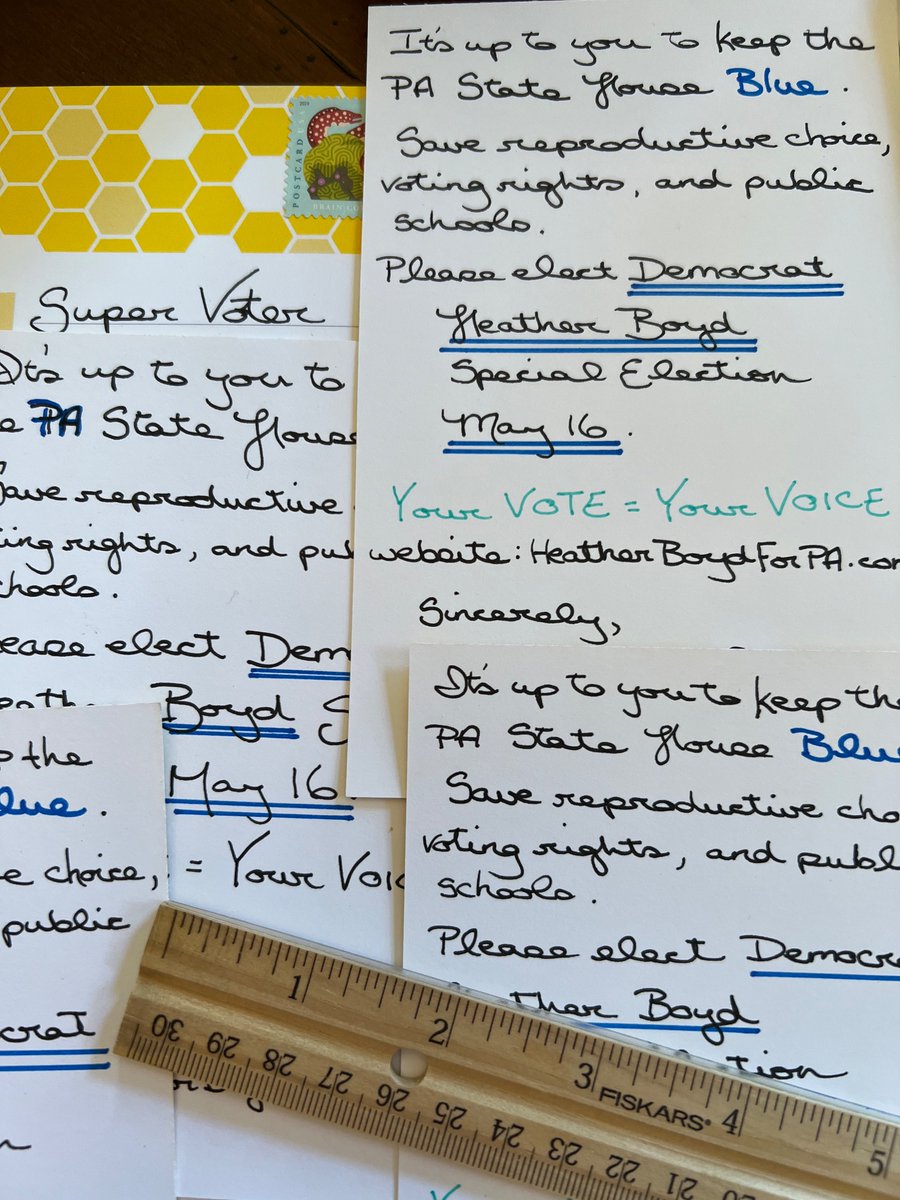 It's up to you to keep the
PA State House Blue.
Save reproductive choice,
voting rights, and public
schools.
Please elect Democrat
Heather Boyd
Special Election
May 16.
Your VOTE = Your VOICE
website: HeatherBoydForPA.com
Sincerely,
2023
POSTCARD U
BRAIN CO
Super Voter
It's up to you to
PA State House
Save reproductive
ting rights, and pub
chools.
ease elect Dem
Boyd S
May 16.
= Your VOIC
the
lue.
e choice,
public
crat
It's up to you to keep the
PA State House Blue
Save reproductive cho
voting rights, and publ
schools.
Please elect Democra
ther Boyd
tion
1 2 3 4 5
FISKARS
30 29 28 27 26 25 24 23 22 21 20